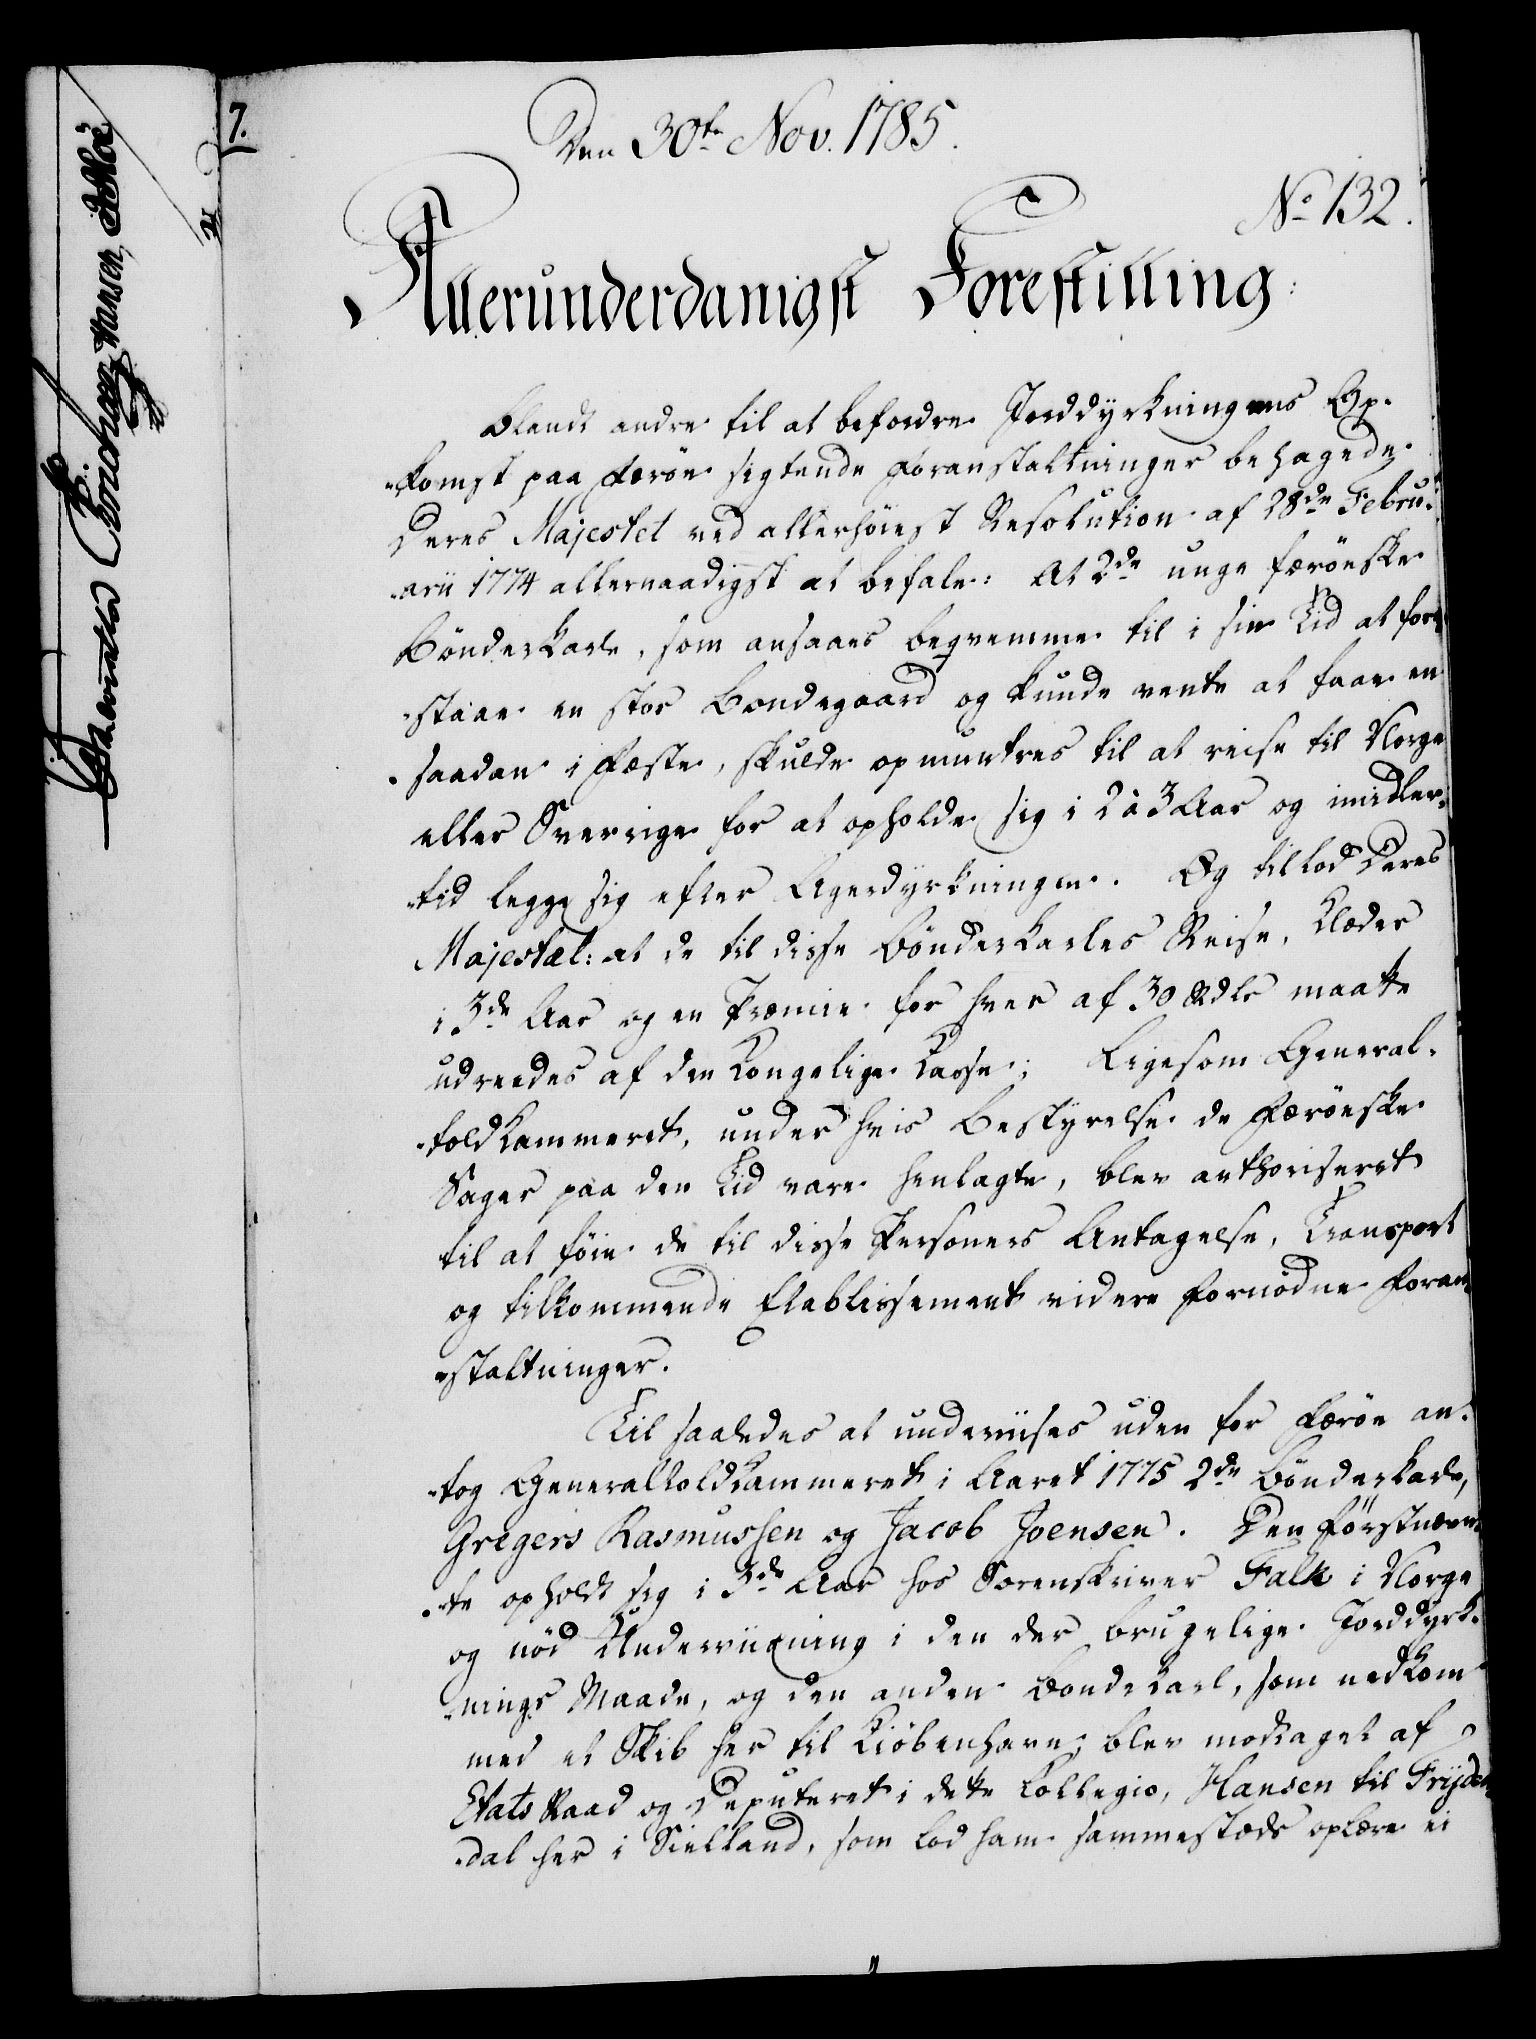 7.
Den 30te Nov. 1785.
No 132.
Allerunderdanigst Forestilling:
Blandt andre til at befordre Jorddyrkningens Op-
-komst paa Færöe sigtende Foranstaltninger behagede
Deres Majestet ved allerhöiest Resolution af 28de Febru-
-arii 1774 allernaadigst at befale: At 2de unge færöeske
Bönderkarle, som ansaaes beqvemme til i sin Tid at fore-
-staae en stor Bondegaard og kunde vente at faae en
-saadan i Fæste, skulde opmuntres til at reise til Norge
eller Sverrige for at opholde sig i 2 à 3 Aar og imidler-
-tid legge sig efter Agerdyrkningen. Og tillod Deres
Majestæt: at de til disse Bönderkarles Reise, Klæder
i 3de Aar og en Præmie for hver af 30 Rdlr maatte
udreedes af den Kongelige Kasse; Ligesom General-
-toldkammeret, under hvis Bestyrelse de Færöeske
Sager paa den Tid vare henlagte, blev authoriseret
til at föie de til disse Personers Antagelse, Transport
og tilkommende Etablissement videre fornödne Foran-
-staltninger.
Til saaledes at underviises uden for Færöe an-
-tog Generaltoldkammeret i Aaret 1775 2de Bönderkarle,
Gregers Rasmussen og Jacob Joensen. Den förstnævn-
-te opholdt sig i 3de Aar hos Sorenskriver Falk i Norge
og nöd Underviisning i den der brugelige Jorddyrk-
-nings Maade, og den anden Bondekarl, som nedkom
med et Skib her til Kiöbenhavn, blev modtaget af
Etats Raad og Deputeret i dette Collegio, Hansen til Frÿden-
-dal her i Sielland, som lod ham sammestæds oplære ei